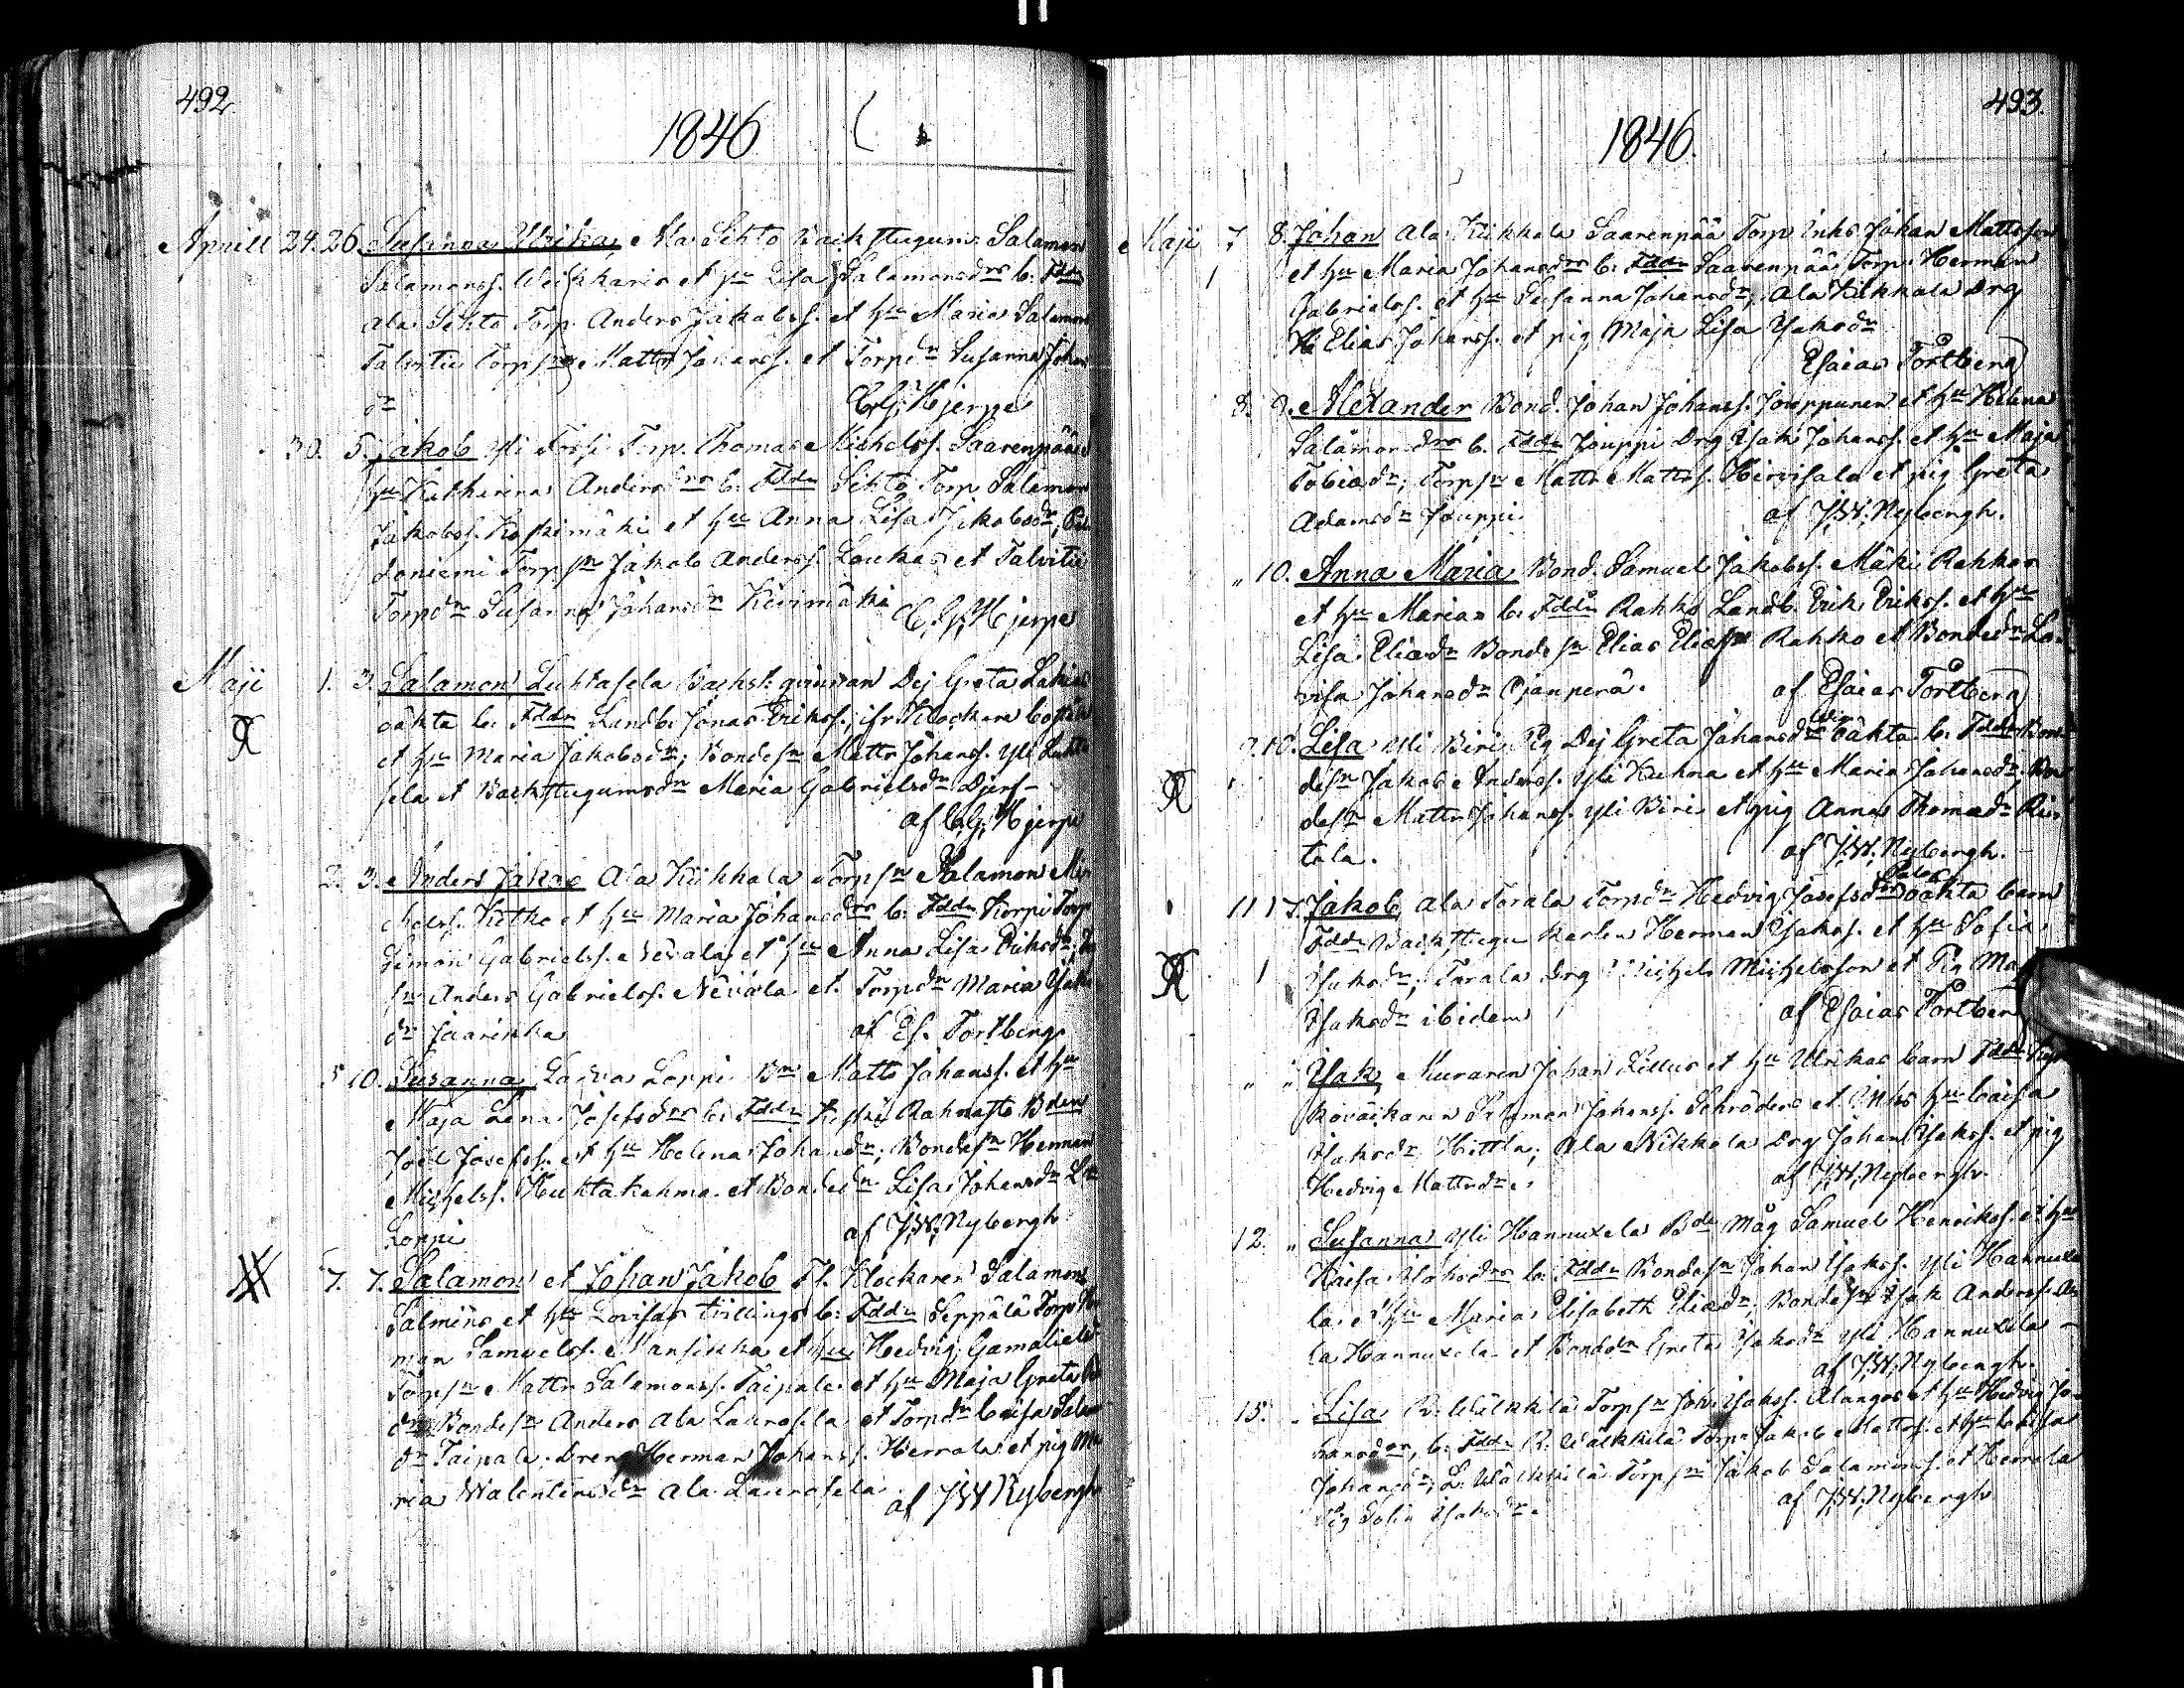 492.
1846
Aprill 24. 26. Susanna Ulrika, Ala Sihto Backstugum. Salamon
Salamonss. Weikkaris et hu Lisa Salamonsdrs b: Fddr
Ala Sihto Torp. Anders Jakobss. et hu Maria Salamons
Talvitie Torpsn Matts Johanss. et Torpdn Susanna Johans
dr C.G. Hjerpe
30. 5. Jakob Yli Torp. Thomas Michelss. Saarenpääs
hu Katharina Andersdrs b: Fddr Sihto Torp Salamon
Jakobss. Koskimäki et hu Anna Lisa Jakobsdr,
doniemi Torpsn Jakob Anderss. Loukas et Talvitie
Torpdn Susanna Johansdr Kivimäki C.G. Hjerpe
Maji 1. 3. Salamon Luhtasela Backst: qvinnan Dej Greta
oäkta b: Fddr Landb: Jonas Erikss. ifr Klockare bostäl
et hu Maria Jakobsdr; Bondesn Matts Johanss. Yli Luhta
sela et Backstugumsdn Maria Gabrielsdr Djerf-
af C.G. Hjerpe
2. 3. Anders Jakob Ala Kükkala Torpsn Salamon Mi
chelss. Ketko et hu Maria Johansdrs b: Fddr Korpi Torp
Simon Gabrielss. Nevala et hu Anna Lisa Eriksdr,
sn Anders Gabrielss. Nevala et Torpdn Maria Isaks
dr Jaariska af Es. Tortberg
5 10. Susanna Ladva Loppi Bn Matts Johanss. et hu
Maja Lena Josefsdrs b: Fddr Keski Rahnasto Bden
Joel Josefss. et hu Helena Johansdr; Bondesn Herman
Michelss. Huhtakahma et Bondedn Lisa Johansdr L
Loppi af J.W. Nybergh
7. 7. Salamon et Johan Jakob Fl. Klockaren Salamon
Salmins et hu Lovisas tvillings b: Fddr Seppälä Torp Her
man Samuelss. Mansikka et hu Hedvig Gamaliels
Torpsn Matts Salamonss. Taipale et hu Maja Greta
dr Bondesn Anders Ala Laurosela et Torpdn Caisa Salam
dr Taipale; Dreng Herman Johanss. Herrala et pig Ma
ria Walentinsdr Ala Laurosela af J.W. Nybergh
493.
1846.
Maji 7 8. Johan Ala Kükkala Saarenpää Torp Inhs Johan Mattsson
et hu Maria Johansdrs b: Fddr Saarenpää Torp. Herman
Gabrielss. et hu Susanna Johansdr, Ala Kükkala Drg
Elias Johanss. et pig Maja Lisa Isaksdr
Esaias Tortberg
8. 9. Alexander Bond. Johan Johanss. Jouppunen et hu Helena
Salamonsdrs b. Fddr Jouppi Drg Isak Johanss. et hu Maja
Tobiædr; Torpsn Matts Mattss. Hirvisala et pig Greta
Adamsdr Jouppi. af J.W. Nybergh.
„ 10. Anna Maria Bond. Samuel Jakobss. Mäki Rahkos
et hu Marias b: Fddr Rahko Landb. Erik Erikss. et hu
Lisa Eliædr Bondesn Elias Eliæs Rahko et Bondedn Lo
visa Johansdr Ojanperä. af Esaias Tortberg
9. 10. Lisa Yli Biri Pig Dej Greta Johansdrs oäkta b. Fddr Bon
desn Jakob Anderss. Yli Kuhna et hu Maria Johansdr, Bon
desn Matts Johanss. Yli Biri et pig Anna Thomædr Ris
tola. af J.W. Nybergh.
11 17. Jakob, Ala Torala Torpdn Hedvig Josefsdrs oäkta barn
Fddr Backstugu karlen Herman Isakss. et hu Sofia
Isaksdr; Torala Drg Michels Michelsson et Pig Ma
Isaksdr ibidem af Esaias Tortberg
„ „ Isak, Muraren Johan Lillus et hu Ulrikas barn Fddr
kovackaren Salamon Johanss. Schröder et Inhs hu Caisa
Isaksdr Hittla; Ala Nikkola Drg Johan Isakss. et pig
Hedvig Mattsdr. af J.W. Nybergh.
12. „ Susanna Yli Hannuxela Bde Måg Samuel Henrikss. et hu
Kaisa Isaksdrs b: Fddr Bondesn Johan Isakss. Yli Hannuxe
la et hu Maria Elisabeth Eliædr; Bondesn Isak Anderss. A
la Hannuxela et Bondedn Greta Isaksdr Yli Hannuxela
af J.W. Nybergh.
15. „ Lisa R. Wälkkilä Torpsn Joh: Isakss. Alangos et hu Hedvig Jo-
hansdrs, b: Fddr R. Wälkkilä Torp. Jakob Mattss. et hu Lovisa
Johansdr; L. Wälkkilä Torpsn Jakob Salamonss. et Herrala
Pig Sofia Isaksdr. af J.W. Nybergh